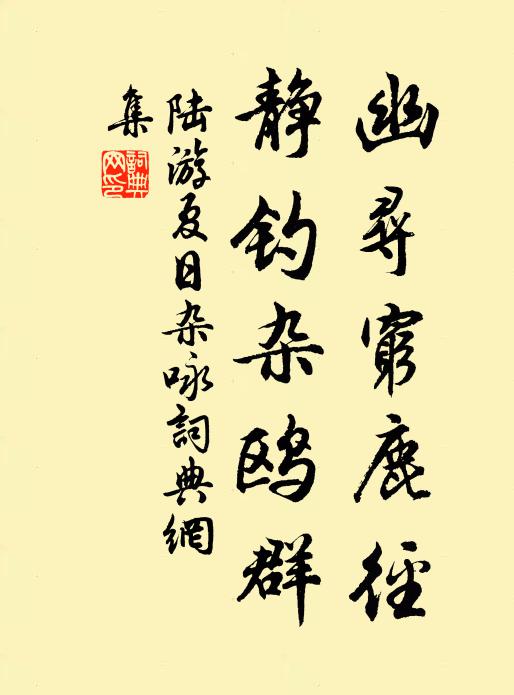 幽尋窮鹿徑
静钓杂鸥群
陆游夏日杂咏詞典網
集
詞典
网印